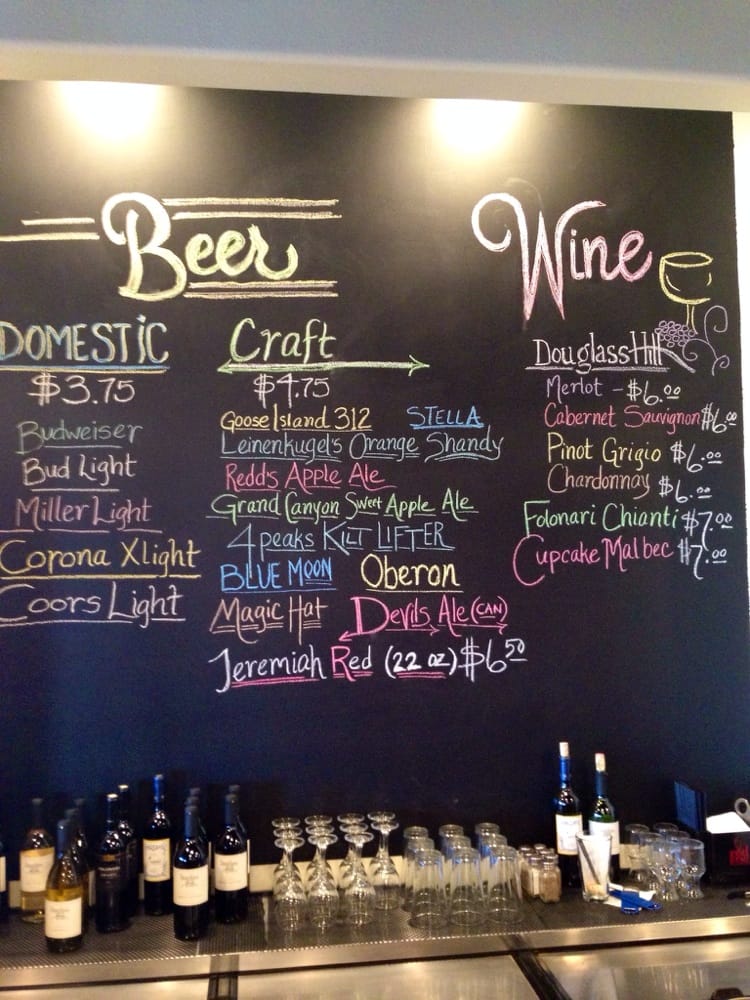 Beer
DOMESTIC
$3.75
Budweiser
Bud Light
Miller Light
Corona Xlight
Coors Light
Craft
$4.75
Goose Island 312 STELLA
Leinenkugel's Orange Shandy
Redd's Apple Ale
Grand Canyon Sweet Apple Ale
4 peaks KILT LIFTER
BLUE MOON Oberon
Magic Hat Devils Ale (CAN)
Jeremiah Red (22 oz) $6.50
Wine
Douglass Hill
Merlot - $6.00
Cabernet Sauvignon $6.00
Pinot Grigio $6.00
Chardonnay $6.00
Folonari Chianti $7.00
Cupcake Malbec $7.00